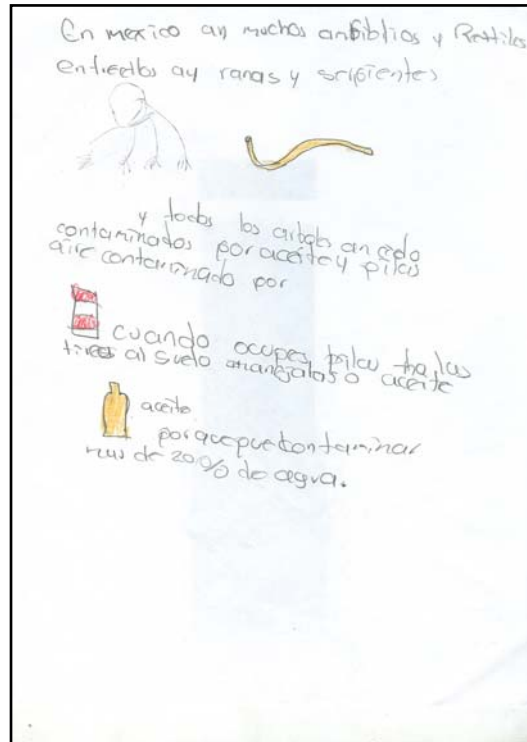 En mexico ay muchos anfiblios y Rettiles
entreellos ay ranas y serpientes
y todos los arboles an cedo
contaminados por aceite y pilas
aire contaminado por
cuando ocupes pilas no las
tires al suelo o aceite
aceite
porque puecontaminar
mas de 20% de agua.